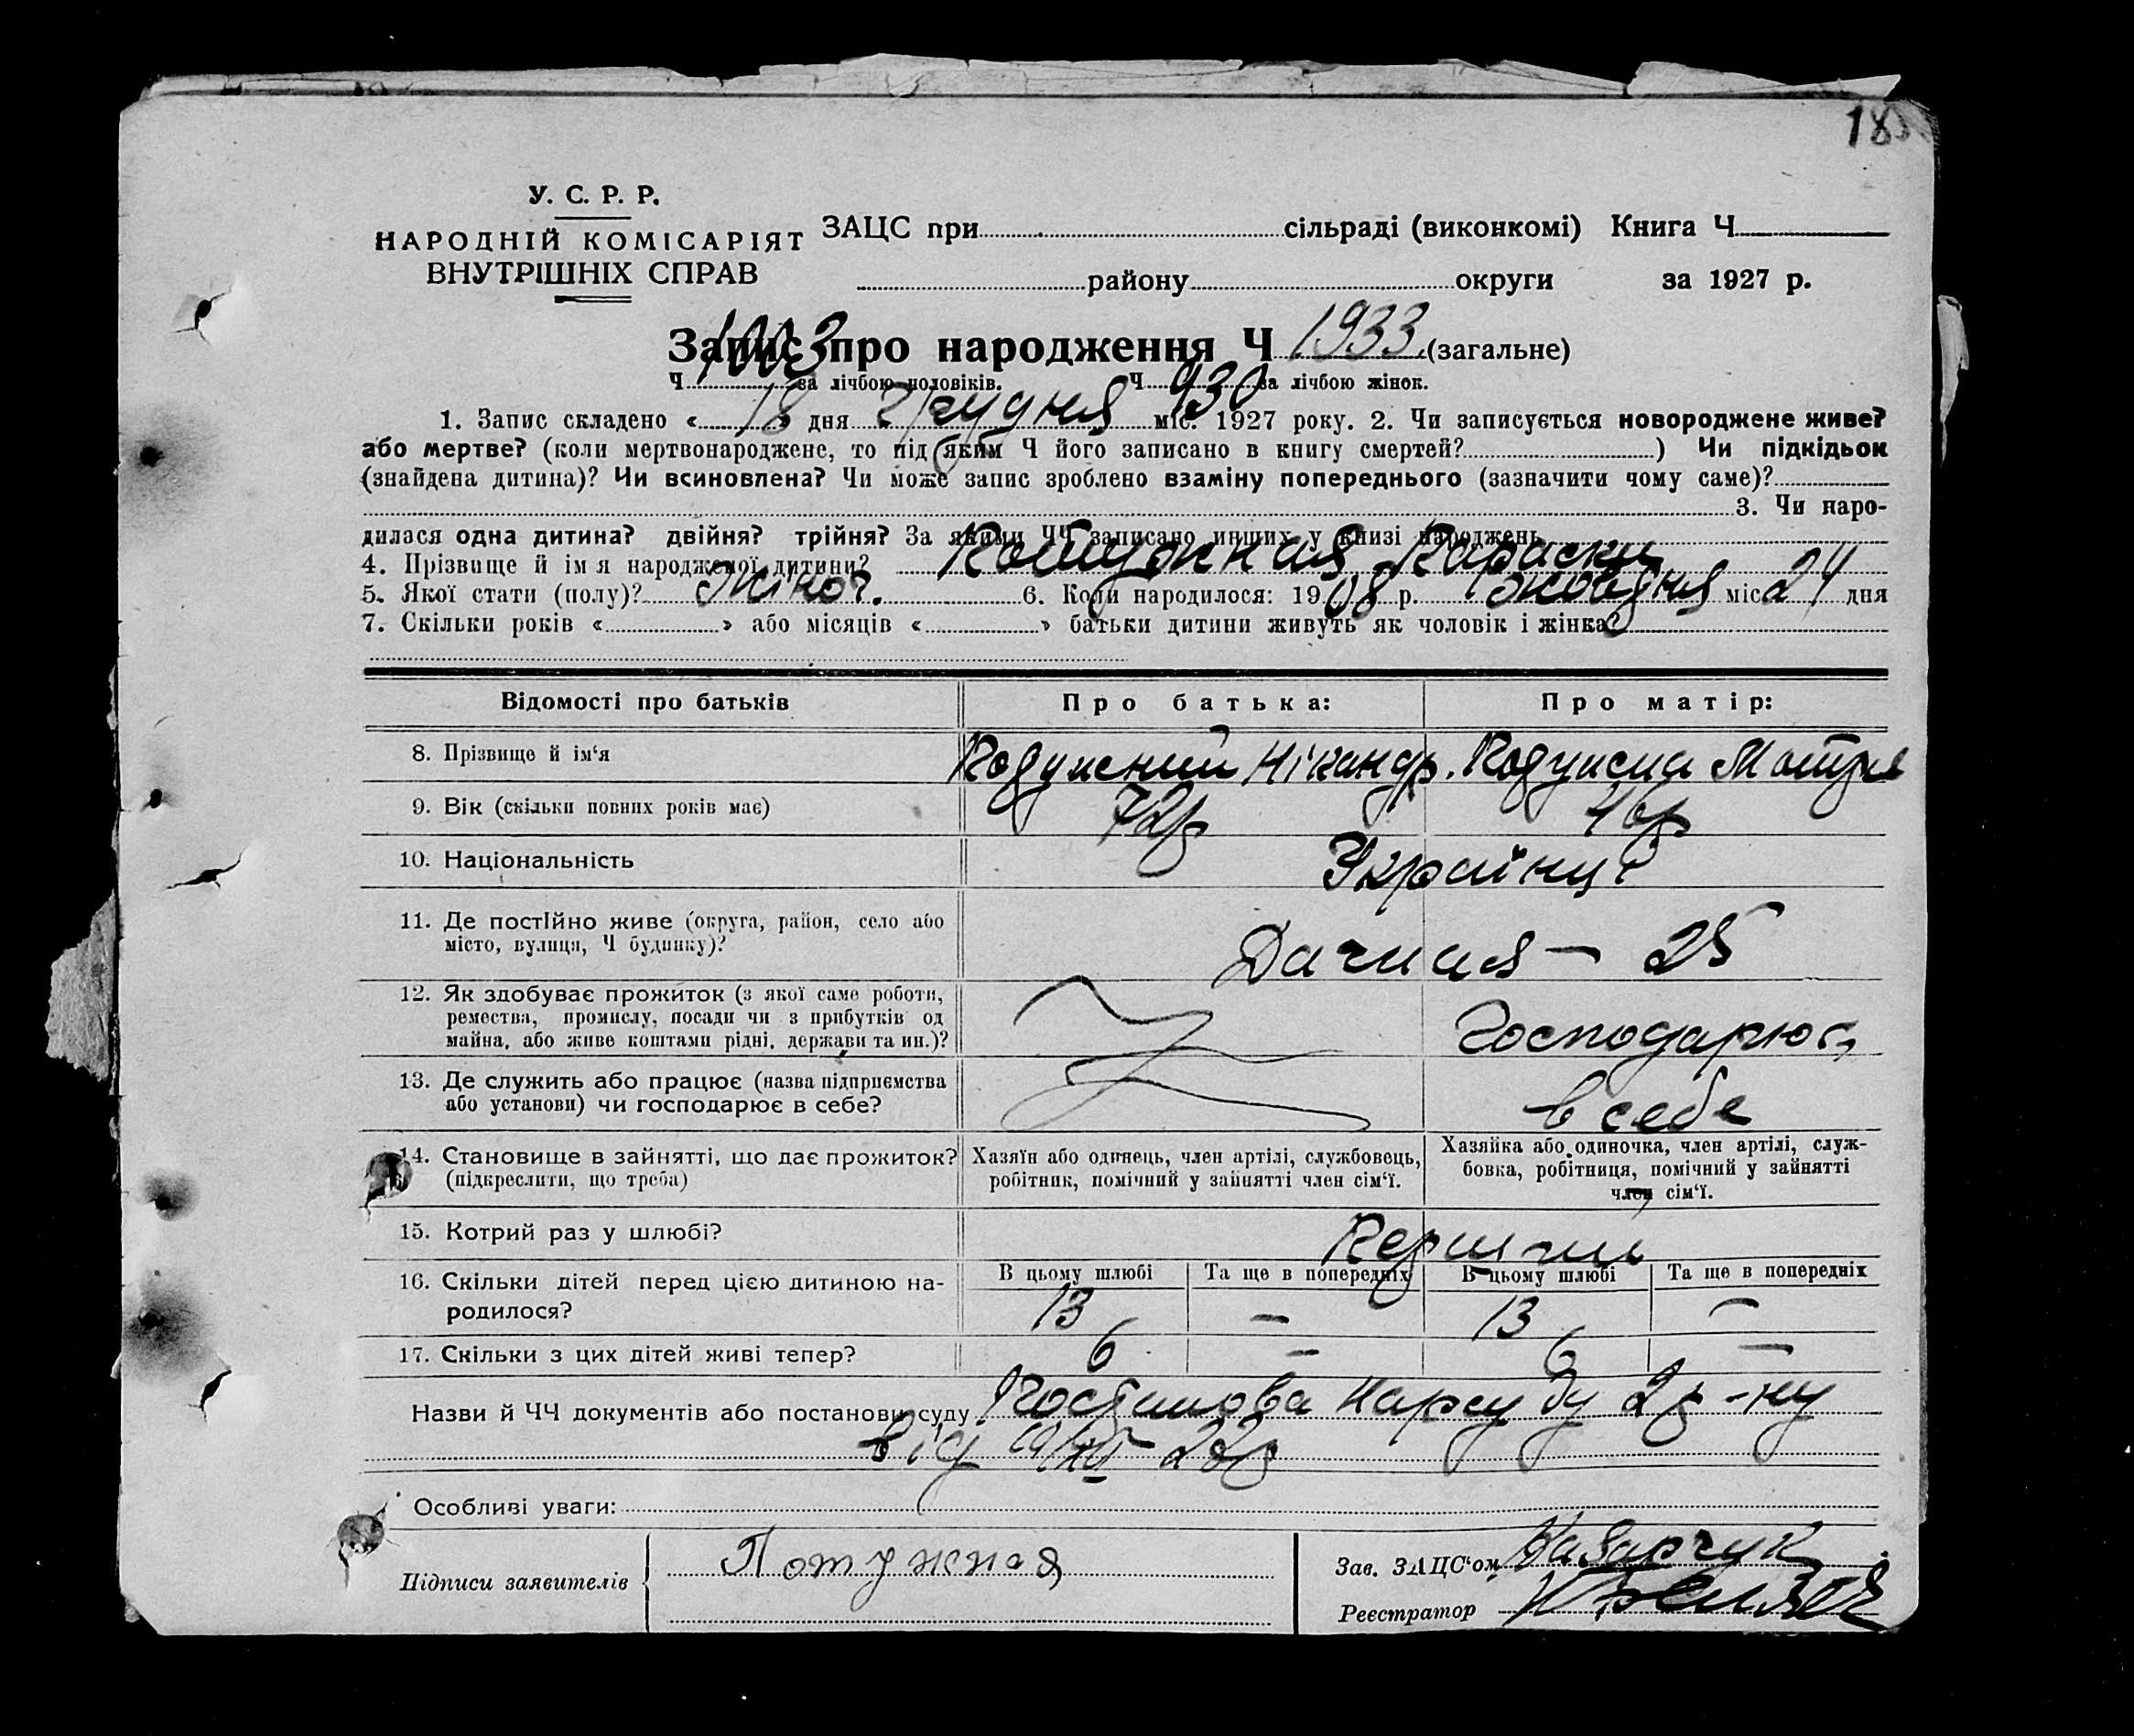 18
У. С. Р. Р.
НАРОДНІЙ КОМІСАРІЯТ
ВНУТРІШНІХ СПРАВ
ЗАЦС при сільраді (виконкомі) Книга Ч
району округи за 1927 р.
Запис про народження Ч 1933 (загальне)
Ч 1003 за лічбою чоловіків. Ч 930 за лічбою жінок.
1. Запис складено « 18 » дня Грудня міс. 1927 року. 2. Чи записується новороджене живе?
або мертве? (коли мертвонароджене, то під яким Ч його записано в книгу смертей? ) Чи підкідьок
(знайдена дитина)? Чи всиновлена? Чи може запис зроблено взаміну попереднього (зазначити чому саме)?
3. Чи наро-
дилася одна дитина? двійня? трійня? За якими ЧЧ записано инших у книзі народжень
4. Прізвище й ім я народженої дитини?
5. Якої стати (полу)? жіноч. 6. Коли народилося: 1908 р. жовтня міс 24 дня
7. Скільки років « » або місяців « » батьки дитини живуть як чоловік і жінка?
Відомості про батьків Про батька: Про матір:
8. Прізвище й ім‘я Нікандр.
9. Вік (скільки повних років має) 72р 46р
10. Національність Українці
11. Де постійно живе (округа, район, село або
місто, вулиця, Ч будинку)? Дачная — 25
12. Як здобуває прожиток (з якої саме роботи,
ремества, промислу, посади чи з прибутків од
майна, або живе коштами рідні, держави та ин.)? Господарює
13. Де служить або працює (назва підприємства
або установи) чи господарює в себе? в себе
14. Становище в зайнятті, що дає прожиток?
(підкреслити, що треба)
Хазяїн або одинець, член артілі, службовець,
робітник, помічний у зайнятті член сім‘ї.
Хазяйка або одиночка, член артілі, служ-
бовка, робітниця, помічний у зайнятті
член сім‘ї.
15. Котрий раз у шлюбі?
16. Скільки дітей перед цією дитиною на-
родилося?
В цьому шлюбі Та ще в попередніх В цьому шлюбі Та ще в попередніх
13 — 13 —
17. Скільки з цих дітей живі тепер? 6 — 6 —
Назви й ЧЧ документів або постанови суду Постанова Нарсуду 2 р-ну
від
Особливі уваги:
Підписи заявителів Потужная
Зав. ЗАЦС‘ом
Реєстратор